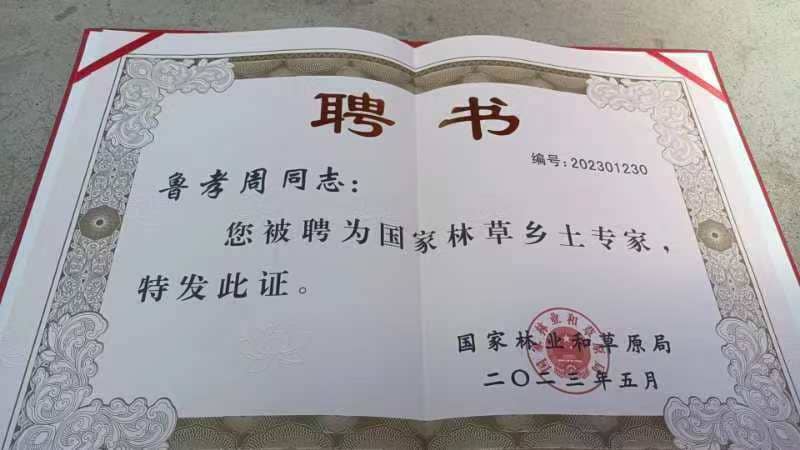 聘书
编号:202301230
鲁孝周同志:
您被聘为国家林草乡土专家,
特发此证。
国家林业和草原局
二〇二三年五月
国家林业和草原局